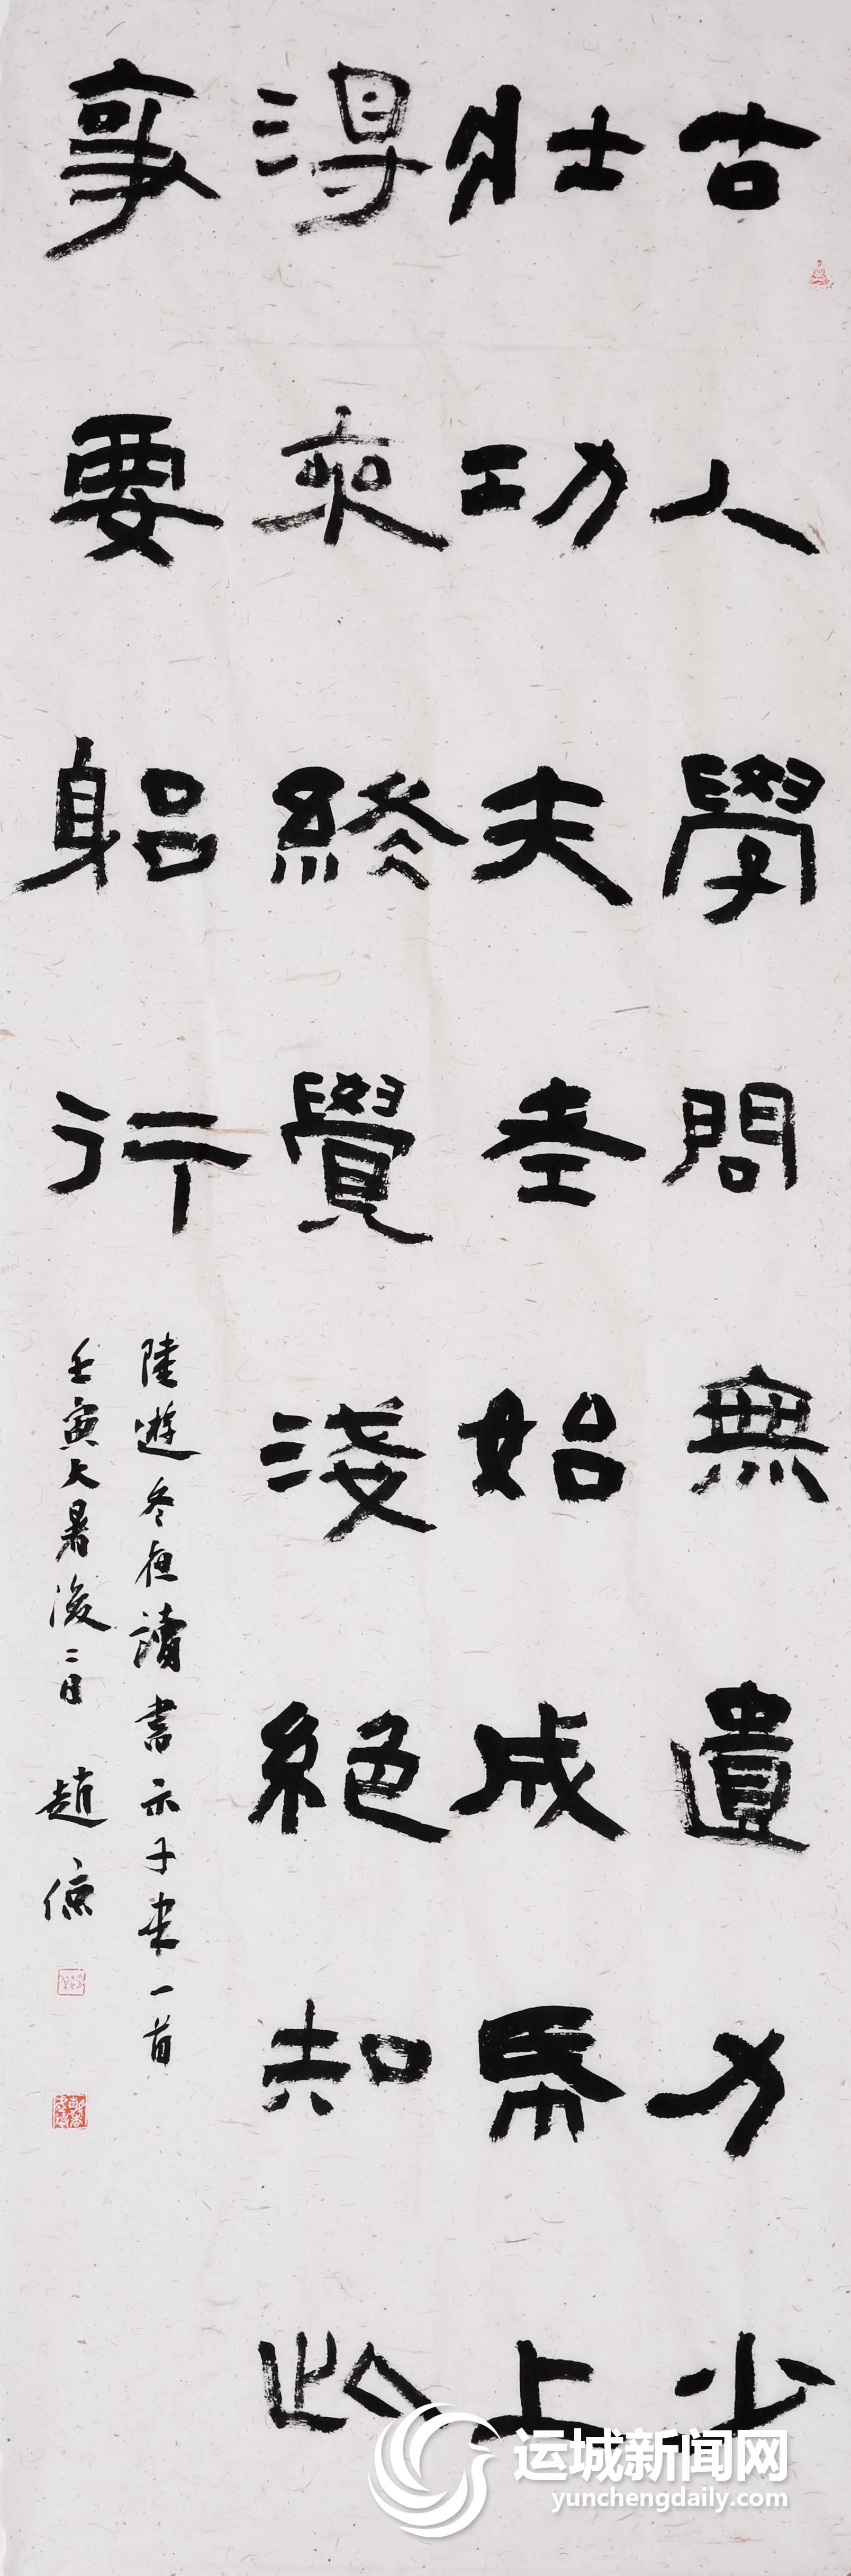 古人學問無遺力少
壯功夫老始成帋上
淂來終覺淺絕知此
事要躳行
陸遊冬夜讀書示子聿一首
壬寅大暑後二日 趙
运城新闻网
yunchengdaily.com